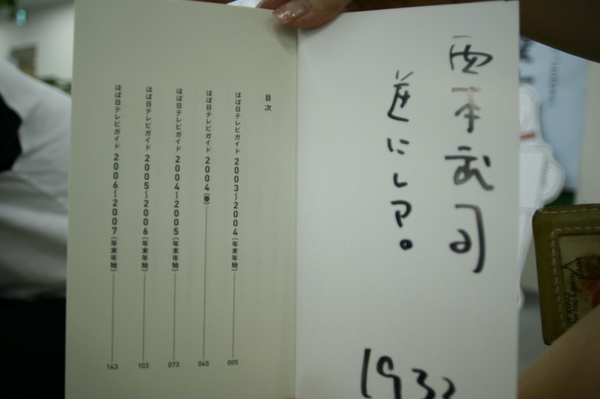 西本武司
逆にレア。
目次
ほぼ日テレビガイド 2003〜2004[年末年始] 005
ほぼ日テレビガイド 2004[春] 045
ほぼ日テレビガイド 2004〜2005[年末年始] 073
ほぼ日テレビガイド 2005〜2006[年末年始] 103
ほぼ日テレビガイド 2006〜2007[年末年始] 143